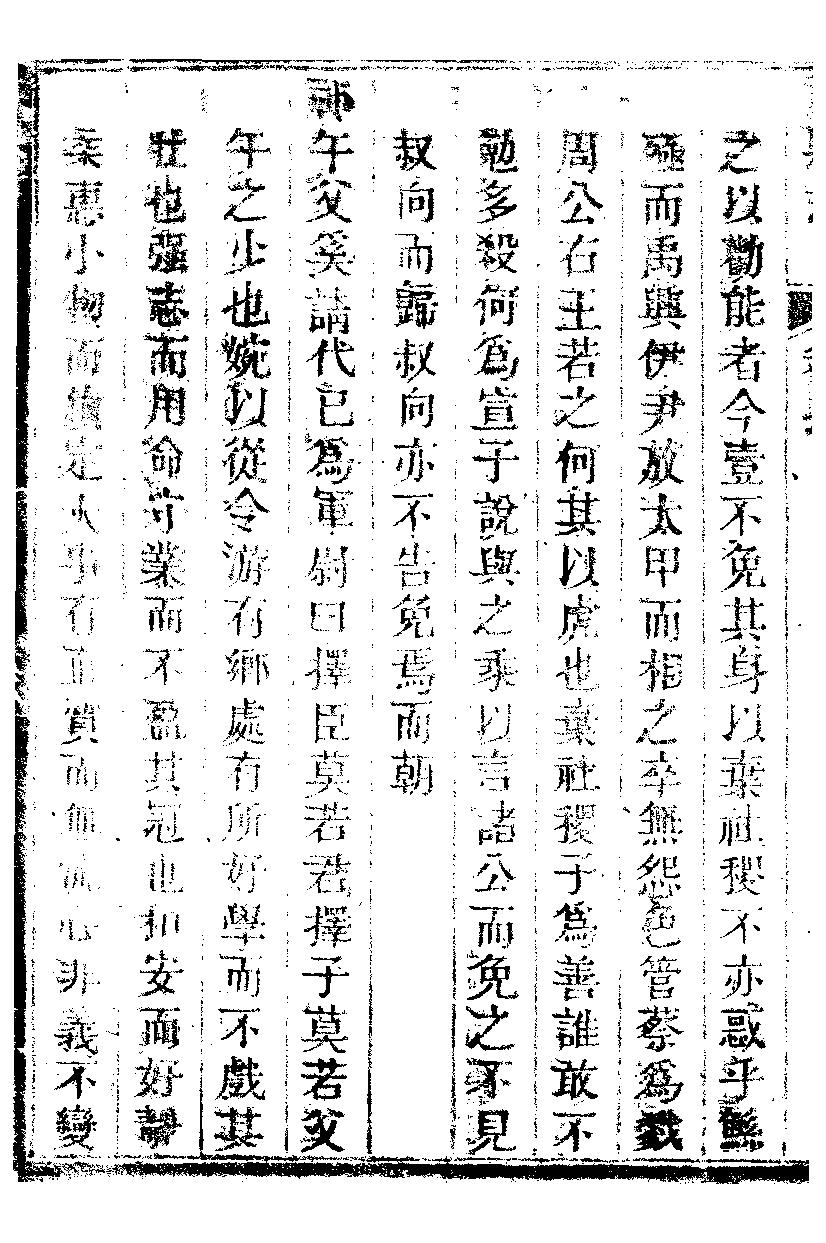 之以勸能者今壹不免其身以棄社稷不亦惑乎鯀
殛而禹興伊尹放太甲而相之卒無怨色管蔡爲戮
周公右王若之何其以虎也棄社稷子爲善誰敢不
勉多殺何爲宣子說與之乘以言諸公而免之不見
叔向而歸叔向亦不告免焉而朝
祁午父奚請代己爲軍尉曰擇臣莫若君擇子莫若父
午之少也婉以從令游有鄉處有所好學而不戲其
壯也强志而用命守業而不盈其冠也和安而好靜
柔惠小物而鎮定大事有直質而無流心非義不變